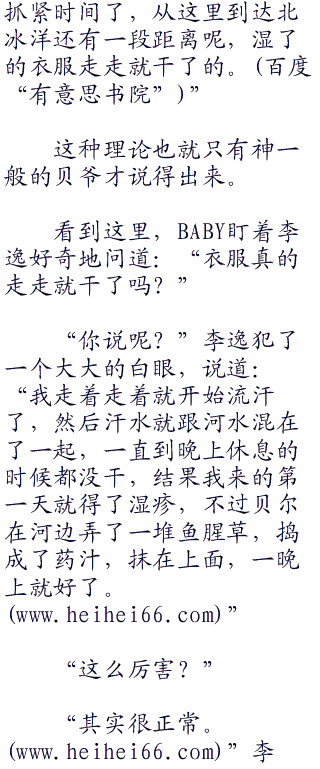 抓紧时间了，从这里到达北
冰洋还有一段距离呢，湿了
的衣服走走就干了的。(百度
“有意思书院”)”
这种理论也就只有神一
般的贝爷才说得出来。
看到这里，BABY盯着李
逸好奇地问道：“衣服真的
走走就干了吗？”
“你说呢？”李逸犯了
一个大大的白眼，说道：
“我走着走着就开始流汗
了，然后汗水就跟河水混在
了一起，一直到晚上休息的
时候都没干，结果我来的第
一天就得了湿疹，不过贝尔
在河边弄了一堆鱼腥草，捣
成了药汁，抹在上面，一晚
上就好了。
(www.heihei66.com)”
“这么厉害？”
“其实很正常。
(www.heihei66.com)”李